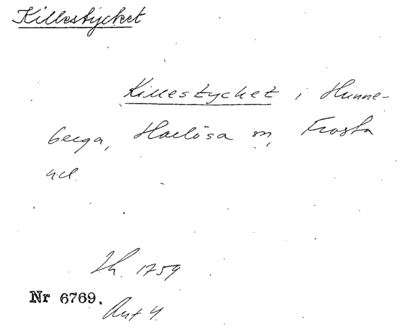 Killestycket
Killestycket i Hunne-
berga, Harlösa sn, Frosta
hd.
Lh. 1759
Nr 6769.
Ant 4.